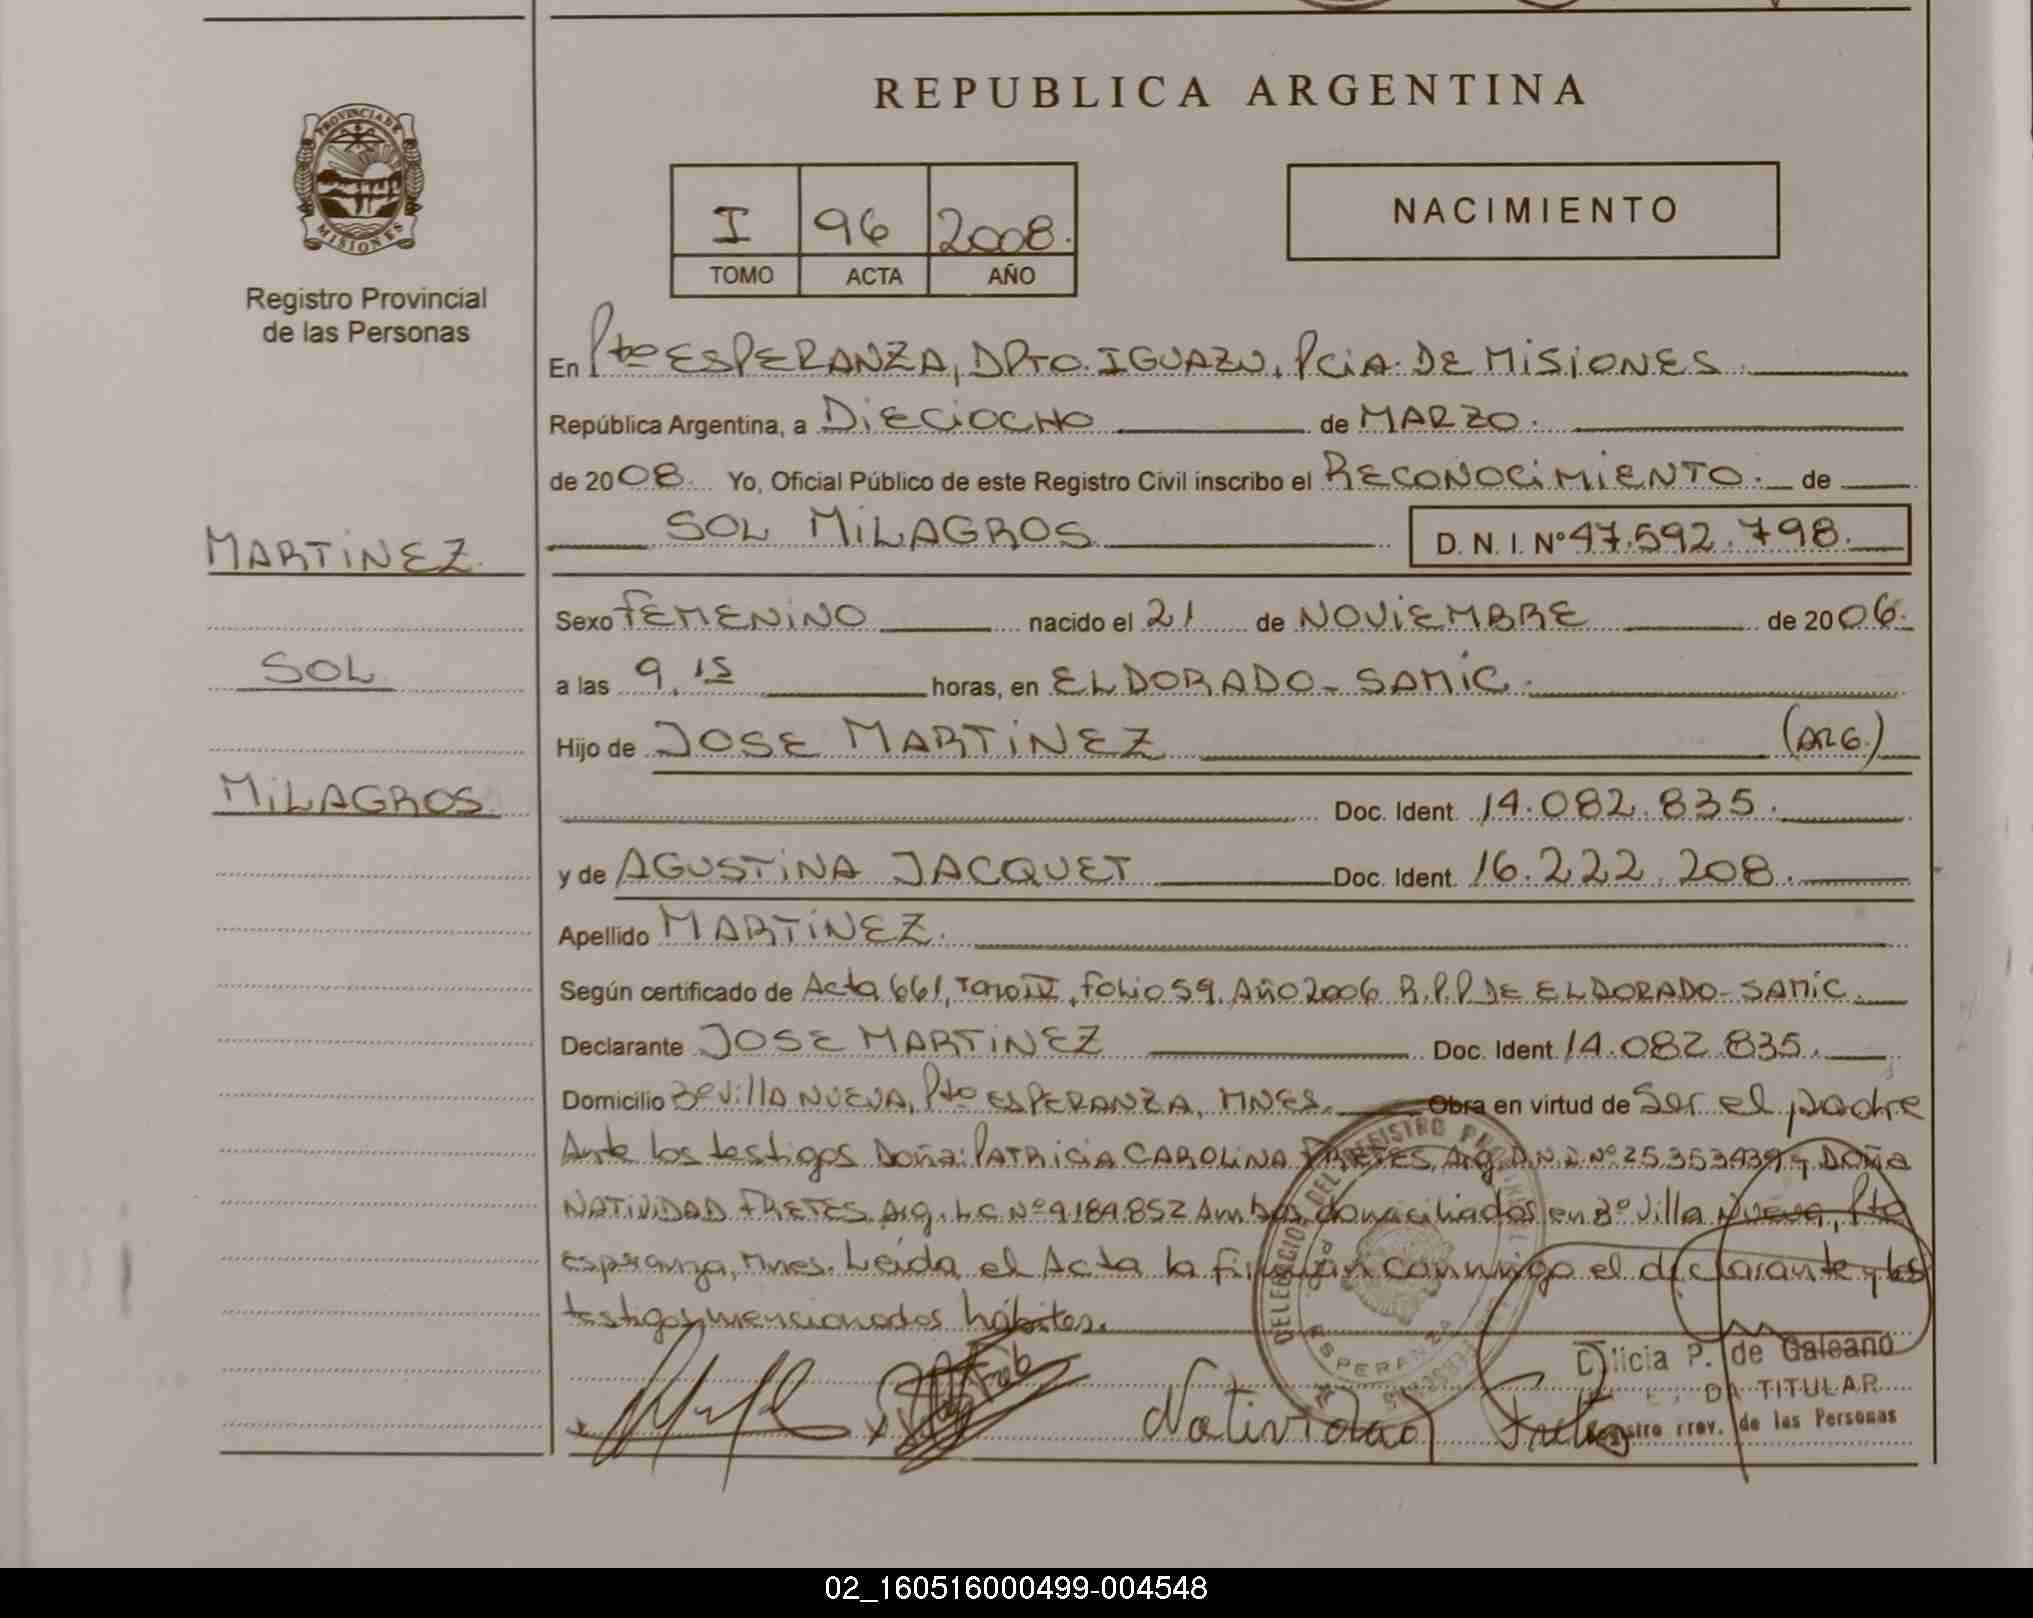 REPUBLICA ARGENTINA
PROVINCIA DE MISIONES
Registro Provincial
de las Personas
I 96 2008.
TOMO ACTA AÑO
NACIMIENTO
En Pto ESPERANZA, DPTO. IGUAZU, PCIA. DE MISIONES
República Argentina, a DIECIOCHO de MARZO.
de 2008. Yo, Oficial Público de este Registro Civil inscribo el RECONOCIMIENTO. de
SOL MILAGROS D. N. I. Nº 47.592.798.
MARTINEZ
SOL
MILAGROS
Sexo FEMENINO nacido el 21 de NOVIEMBRE de 2006.
a las 9,15 horas, en ELDORADO - SAMIC.
Hijo de JOSE MARTINEZ (ARG.)
Doc. Ident. 14.082.835.
y de AGUSTINA JACQUET Doc. Ident. 16.222.208.
Apellido MARTINEZ.
Según certificado de Acta 661, Tomo IV, folio 59, Año 2006 R.P.P DE ELDORADO - SAMIC.
Declarante JOSE MARTINEZ Doc. Ident. 14.082.835.
Domicilio Bº Villa NUEVA, Pto ESPERANZA, MNES. Obra en virtud de Ser el padre
Ante los testigos Doña: PATRICIA CAROLINA FRETES, Arg. D.N.I Nº 25.353.439 y DOÑA
NATIVIDAD FRETES. Arg. L.C. Nº 9.189.852 Ambas domiciliadas en Bº Villa Nueva, Pto
Esperanza, Mnes. Leída el Acta la firman conmigo el declarante y los
testigos mencionados hábiles.
Natividad Fretes
DELEGACION DEL REGISTRO
ESPERANZA
licia P. de Galeano
TITULAR
de las Personas
02_160516000499-004548